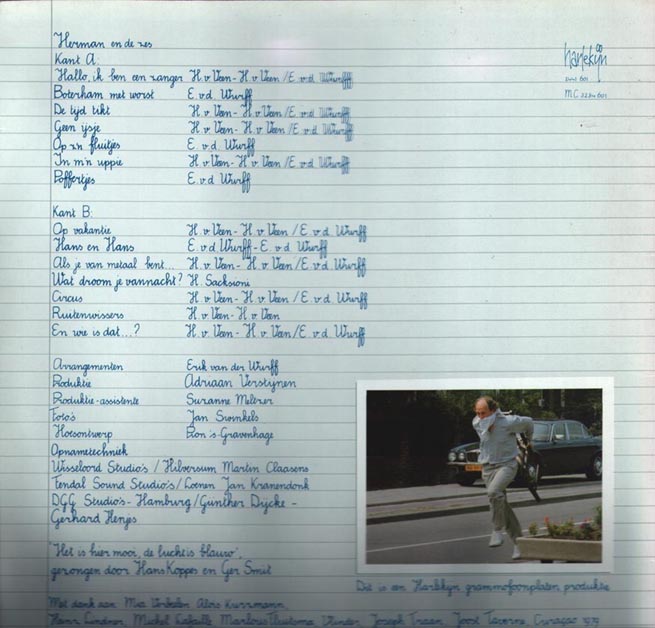 Herman en de zes
Kant A:
Hallo, ik ben een zanger H. v Veen - H. v Veen / E. v.d. Wurff
Boterham met worst E. v.d. Wurff
De tijd tikt H. v Veen - H. v Veen / E. v.d. Wurff
Geen ijsje H. v Veen - H. v Veen / E. v.d. Wurff
Op z'n fluitjes E. v.d. Wurff
In m'n uppie H. v Veen - H. v Veen / E. v.d. Wurff
Poffertjes E. v.d. Wurff
Kant B:
Op vakantie H. v Veen - H. v Veen / E. v.d. Wurff
Hans en Hans E. v.d. Wurff - E. v.d. Wurff
Als je van metaal bent... H. v Veen - H. v Veen / E. v.d. Wurff
Wat droom je vannacht? H. Sacksioni
Circus H. v Veen - H. v Veen / E. v.d. Wurff
Ruitenwissers H. v Veen - H. v Veen
En wie is dat...? H. v Veen - H. v Veen / E. v.d. Wurff
Arrangementen Erik van der Wurff
Produktie Adriaan Verstijnen
Produktie-assistente Suzanne Meltzer
Foto's Jan Swinkels
Hoesontwerp Ron 's-Gravenhage
Opnametechniek
Wisseloord Studio's / Hilversum Martin Claasens
Fendal Sound Studio's / Loenen Jan Kranendonk
DGG Studio's - Hamburg / Günther Dijcke -
Gerhard Henjes
"Het is hier mooi, de lucht is blauw",
gezongen door Hans Koppes en Ger Smit
Met dank aan Mia Verhalen Alois Kurzmann,
Henri Lindner, Michel Lafaille Vlinder Joseph Traan, Joost Taverne, Curaçao 1979
harlekijn
601
MC 601
Dit is een Harlekijn grammofoonplaten produktie